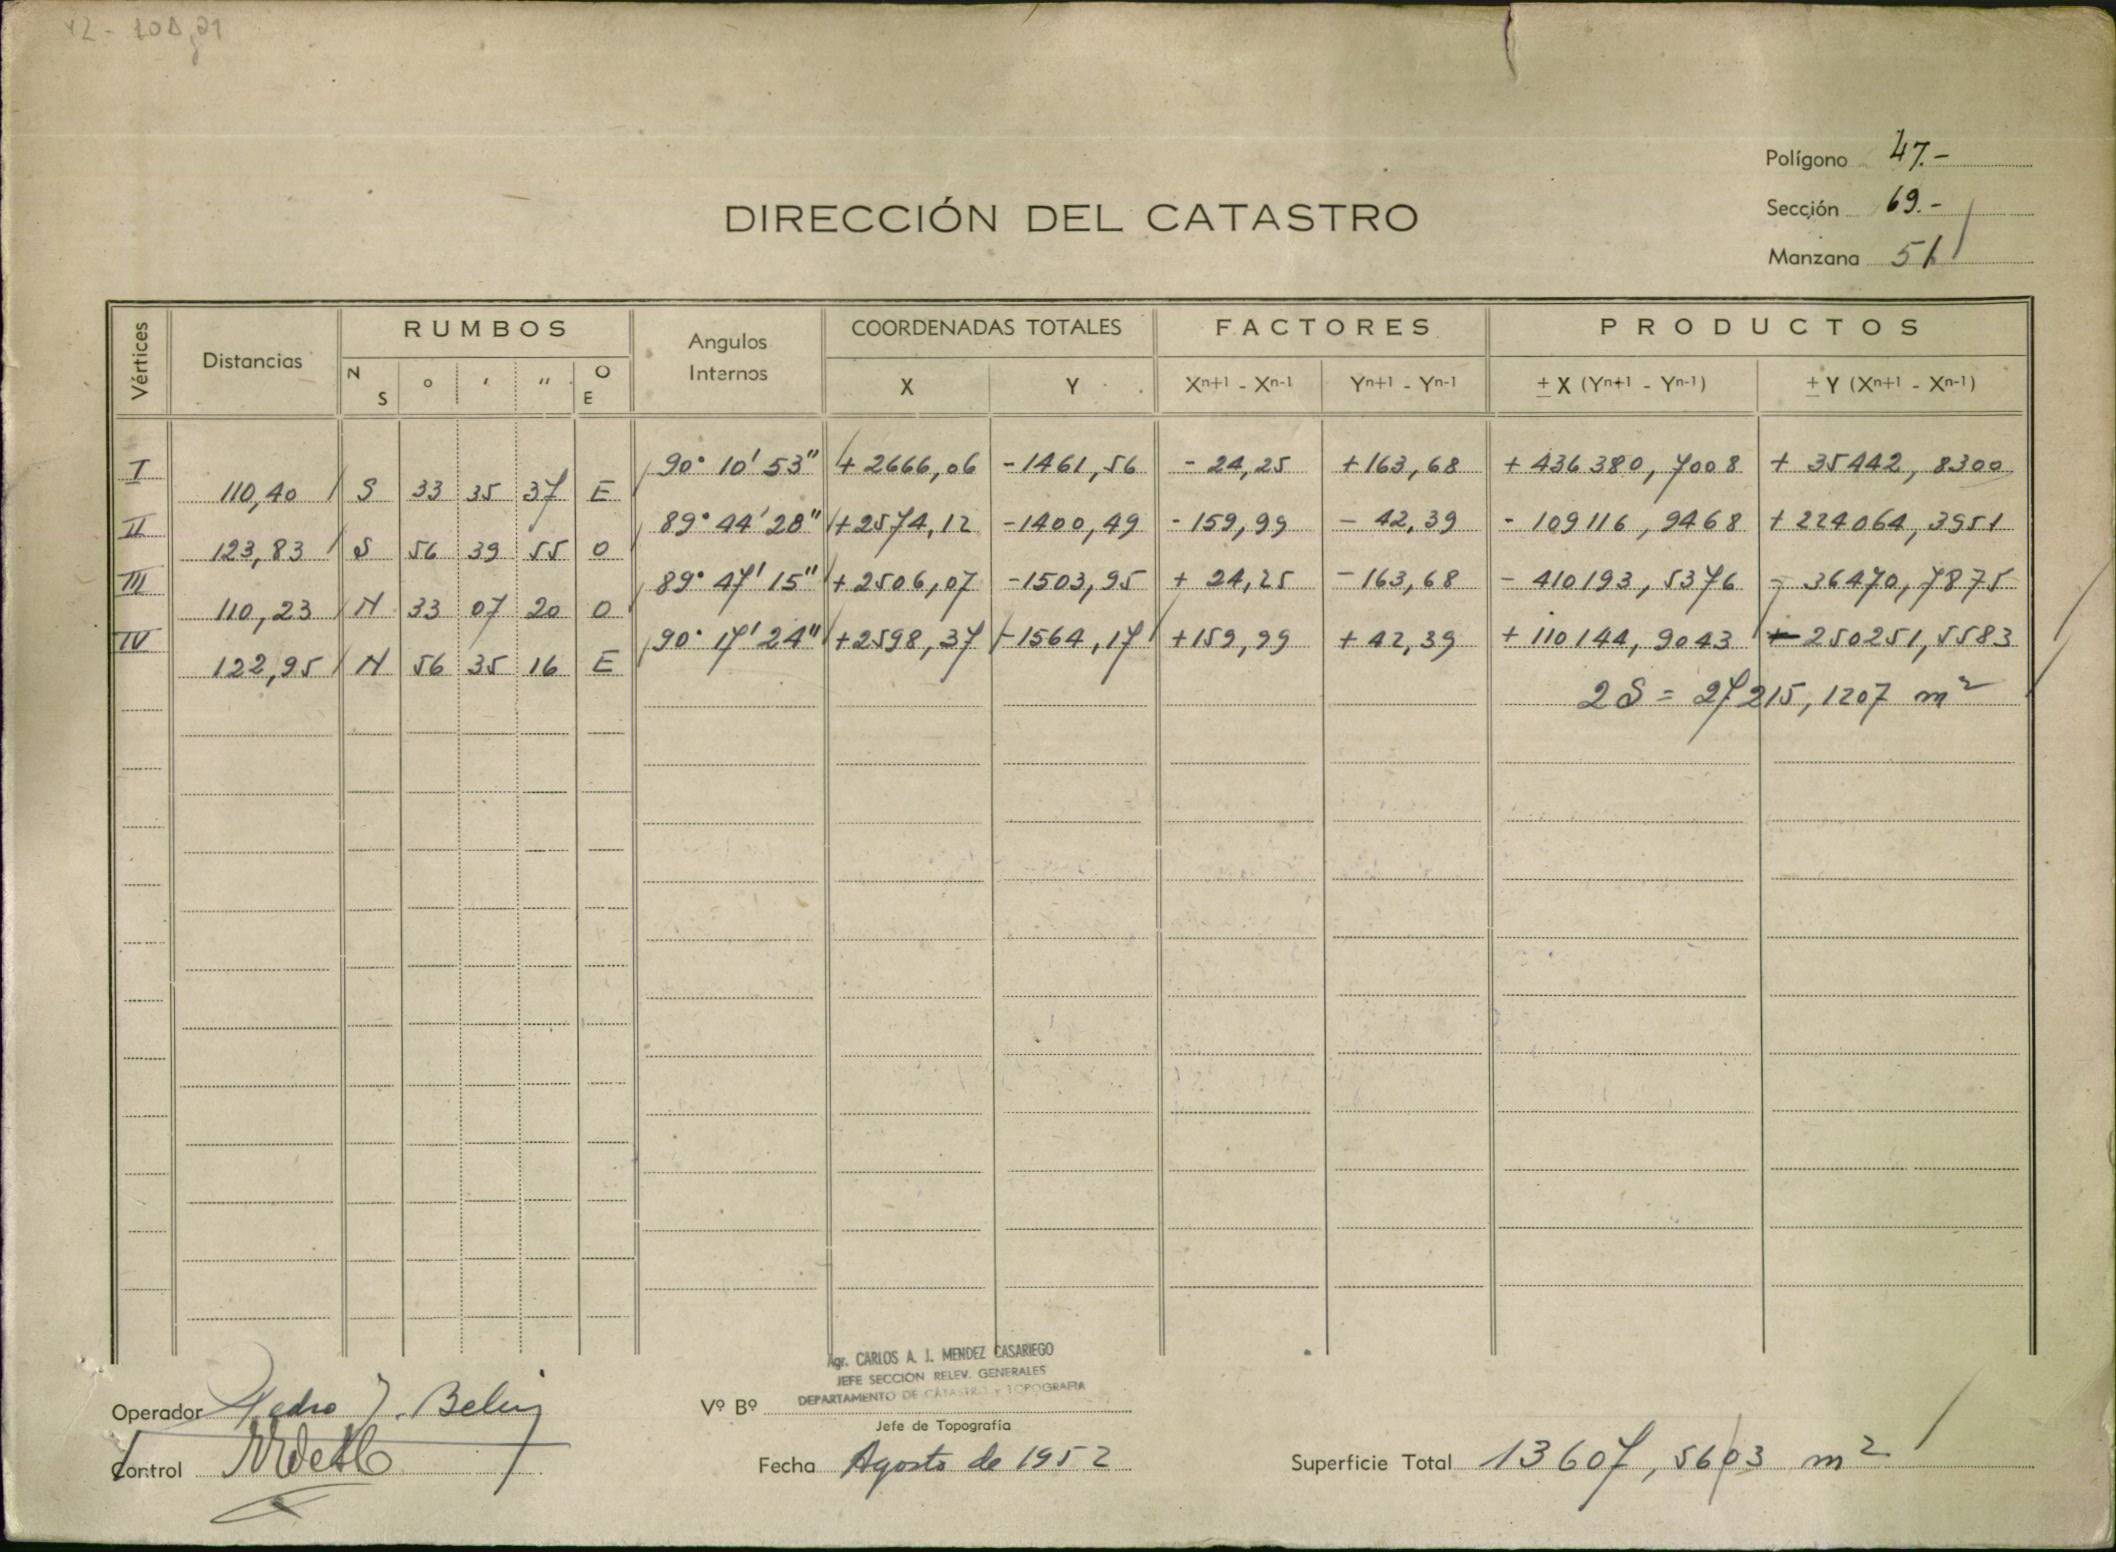 Polígono 47.-
Sección 69.-
DIRECCIÓN DEL CATASTRO
Manzana 51
Vértices Distancias RUMBOS Angulos Internos COORDENADAS TOTALES FACTORES PRODUCTOS
N S ° ' " O E X Y Xn+1 - Xn-1 Yn+1 - Yn-1 ± X (Yn+1 - Yn-1) ± Y (Xn+1 - Xn-1)
I 90° 10' 53" + 2666,06 - 1461,56 - 24,25 + 163,68 + 436380,7008 + 35442,8300
110,40 S 33 35 37 E
II 89° 44' 28" + 2574,12 - 1400,49 - 159,99 - 42,39 - 109116,9468 + 224064,3951
123,83 S 56 39 55 O
III 89° 47' 15" + 2506,07 - 1503,95 + 24,25 - 163,68 - 410193,5376 - 36470,7875
110,23 N 33 07 20 O
IV 90° 17' 24" + 2598,37 - 1564,17 + 159,99 + 42,39 + 110144,9043 - 250251,5583
122,95 N 56 35 16 E
2S = 27215,1207 m²
Agr. CARLOS A. J. MENDEZ CASARIEGO
JEFE SECCIÓN RELEV. GENERALES
DEPARTAMENTO DE CATASTRO y TOPOGRAFIA
Operador Pedro J.
Vº Bº
Jefe de Topografía
Control
Fecha Agosto de 1952
Superficie Total 13607,5603 m²